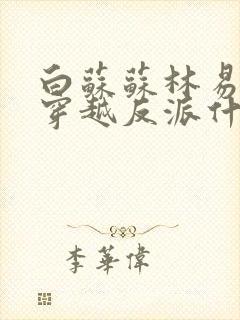 白蘇蘇林易
穿越反派什
李華偉